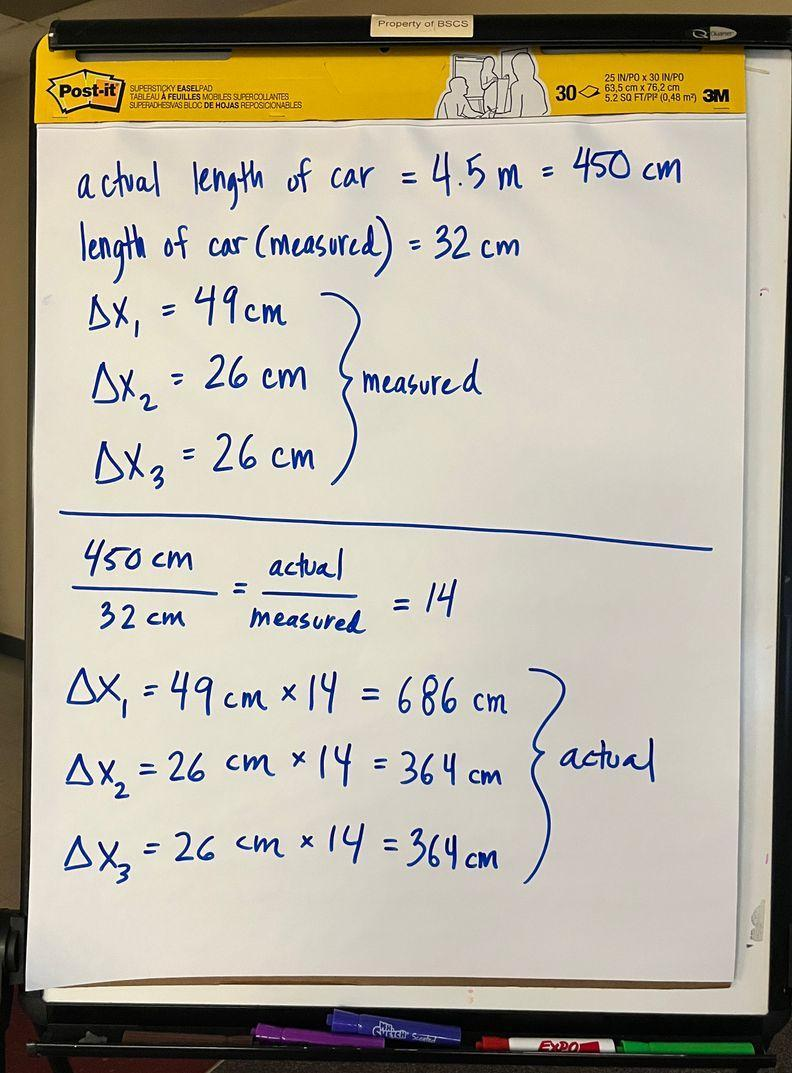 Property of BSCS
Quartet
Post-it
SUPERSTICKY EASELPAD
TABLEAU À FEUILLES MOBILES SUPERCOLLANTES
SUPERADHESIVAS BLOC DE HOJAS REPOSICIONABLES
30
25 IN/PO x 30 IN/PO
63,5 cm x 76,2 cm
5.2 SQ FT/PI² (0,48 m²)
3M
actual length of car = 4.5 m = 450 cm
length of car (measured) = 32 cm
Δx₁ = 49 cm
Δx₂ = 26 cm
Δx₃ = 26 cm
measured
450 cm / 32 cm = actual / measured = 14
Δx₁ = 49 cm × 14 = 686 cm
Δx₂ = 26 cm × 14 = 364 cm
Δx₃ = 26 cm × 14 = 364 cm
actual
Scented
EXPO